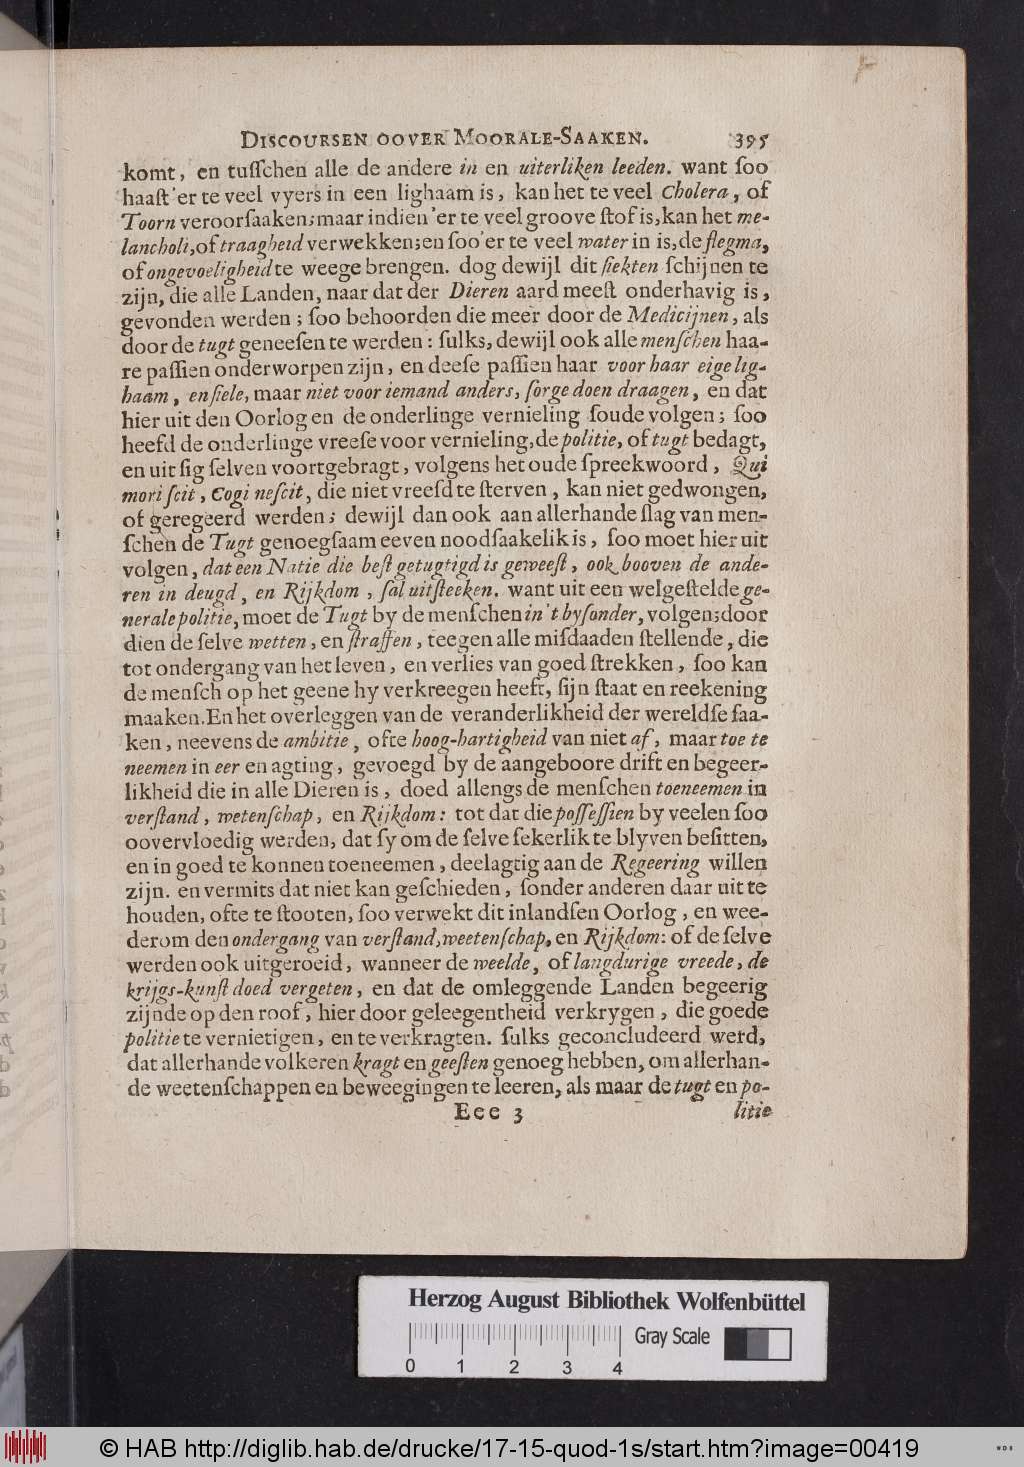 DISCOURSEN OOVER MOORALE-SAAKEN. 395
komt, en tuſſchen alle de andere in en uiterliken leeden. want ſoo
haaſt 'er te veel vyers in een lighaam is, kan het te veel Cholera, of
Toorn veroorſaaken; maar indien 'er te veel groove ſtof is, kan het me-
lancholi, of traagheid verwekken; en ſoo 'er te veel water in is, de flegma,
of ongevoeligheid te weege brengen. dog dewijl dit ſiekten ſchijnen te
zijn, die alle Landen, naar dat der Dieren aard meeſt onderhavig is,
gevonden werden; ſoo behoorden die meer door de Medicijnen, als
door de tugt geneeſen te werden: ſulks, dewijl ook alle menſchen haa-
re paſſien onderworpen zijn, en deeſe paſſien haar voor haar eige lig-
haam, en ſiele, maar niet voor iemand anders, ſorge doen draagen, en dat
hier uit den Oorlog en de onderlinge vernieling ſoude volgen; ſoo
heefd de onderlinge vreeſe voor vernieling, de politie, of tugt bedagt,
en uit ſig ſelven voortgebragt, volgens het oude ſpreekwoord, Qui
mori ſcit, Cogi neſcit, die niet vreeſd te ſterven, kan niet gedwongen,
of geregeerd werden; dewijl dan ook aan allerhande ſlag van men-
ſchen de Tugt genoegſaam eeven noodſaakelik is, ſoo moet hier uit
volgen, dat een Natie die beſt getugtigd is geweeſt, ook booven de ande-
ren in deugd, en Rijkdom, ſal uitſteeken. want uit een welgeſtelde ge-
nerale politie, moet de Tugt by de menſchen in 't byſonder, volgen; door
dien de ſelve wetten, en ſtraffen, teegen alle miſdaaden ſtellende, die
tot ondergang van het leven, en verlies van goed ſtrekken, ſoo kan
de menſch op het geene hy verkreegen heeft, ſijn ſtaat en reekening
maaken. En het overleggen van de veranderlikheid der wereldſe ſaa-
ken, neevens de ambitie, ofte hoog-hartigheid van niet af, maar toe te
neemen in eer en agting, gevoegd by de aangeboore drift en begeer-
likheid die in alle Dieren is, doed allengs de menſchen toeneemen in
verſtand, wetenſchap, en Rijkdom: tot dat die poſſeſſien by veelen ſoo
oovervloedig werden, dat ſy om de ſelve ſekerlik te blyven beſitten,
en in goed te konnen toeneemen, deelagtig aan de Regeering willen
zijn. en vermits dat niet kan geſchieden, ſonder anderen daar uit te
houden, ofte te ſtooten, ſoo verwekt dit inlandſen Oorlog, en wee-
derom den ondergang van verſtand, weetenſchap, en Rijkdom: of de ſelve
werden ook uitgeroeid, wanneer de weelde, of langdurige vreede, de
krijgs-kunſt doed vergeten, en dat de omleggende Landen begeerig
zijnde op den roof, hier door geleegentheid verkrygen, die goede
politie te vernietigen, en te verkragten. ſulks geconcludeerd werd,
dat allerhande volkeren kragt en geeſten genoeg hebben, om allerhan-
de weetenſchappen en beweegingen te leeren, als maar de tugt en po-
Eee 3 litie
Herzog August Bibliothek Wolfenbüttel
Gray Scale
0 1 2 3 4
© HAB http://diglib.hab.de/drucke/17-15-quod-1s/start.htm?image=00419